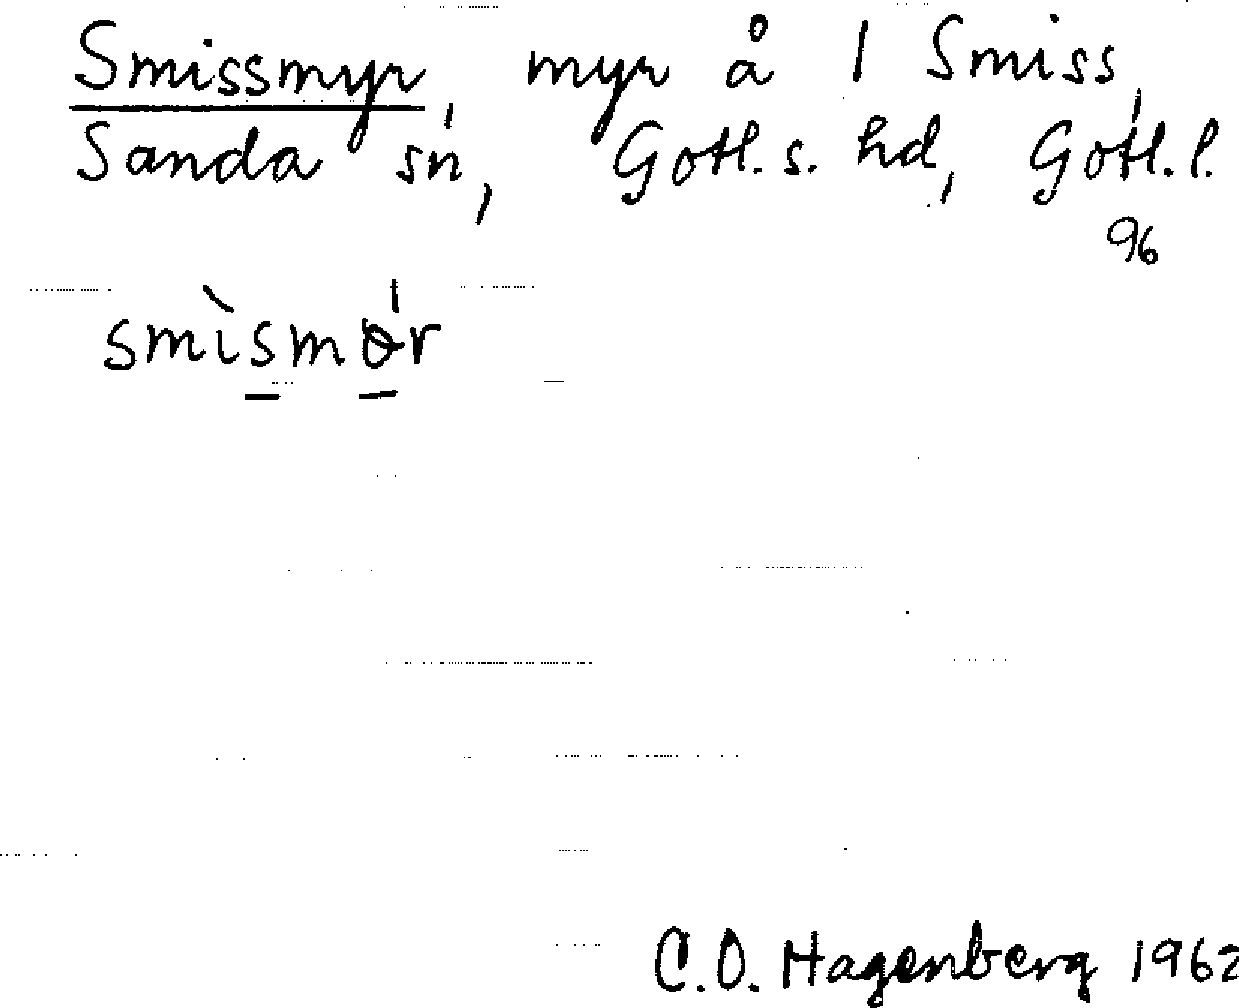 Smissmyr, myr å 1 Smiss,
Sanda sn, Gotl. s. hd, Gotl. l.
96
smìsmɵ́r
C.O. Hagenberg 1962